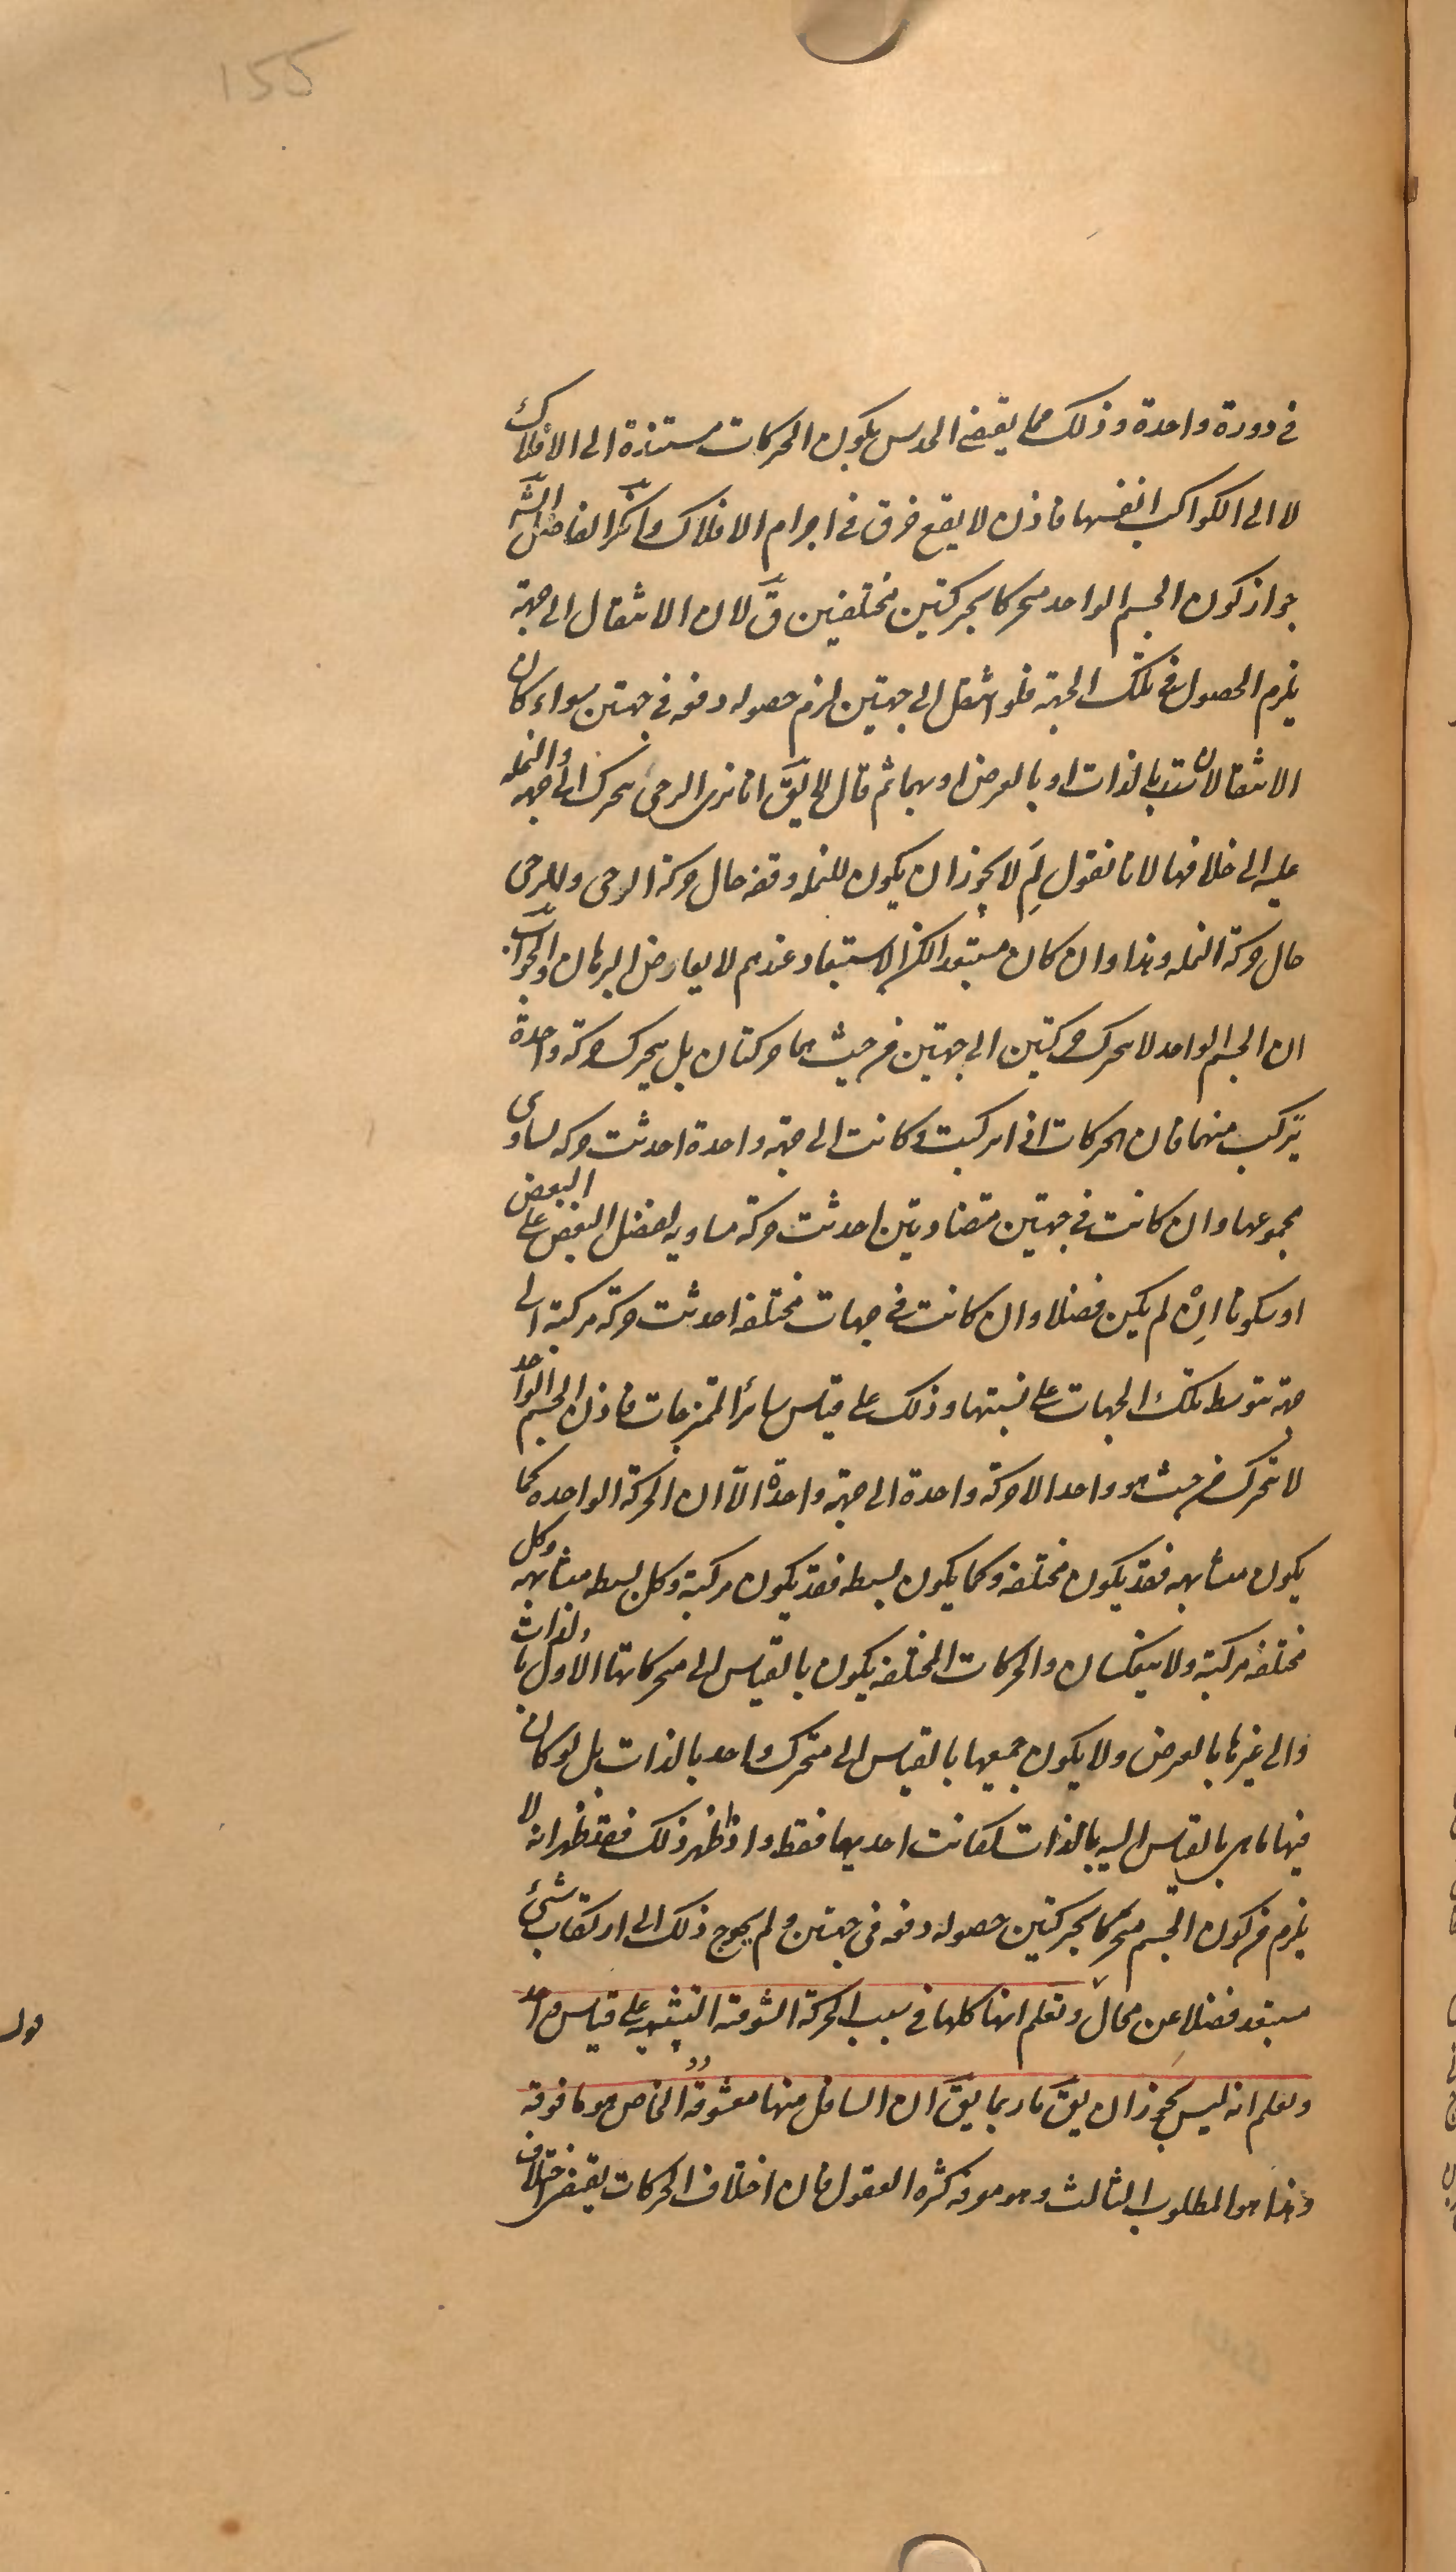 155
في دورة واحدة وذلك مما يقتضى الحدس بكون الحركات مستندة الى الافلاك
لا الى الكواكب انفسها فاذن لا يقع خرق في اجرام الافلاك وانكر الفاضل الشَّ
جواز كون الجسم الواحد متحركا بحركتين مختلفتين قَ لان الانتقال الى جهة
يلزم الحصول في تلك الجهة فلو انتقل الى جهتين لزم حصوله دفعه في جهتين سواء كان
الانتقالان بالذات او بالعرض او بهما ثم قال لا يقَ انا نرى الرحى يتحرك الى جهه والنمله
عليه الى خلافها لانا نقول لِمَ لا يجوز ان يكون للنمله وقفه حال حركة الرحى وللرحى
حال حركة النمله وهذا وان كان مستبعدا لكن الاستبعاد عندهم لا يعارض البرهان والجواب
ان الجسم الواحد لا يتحرك حركتين الى جهتين من حيث هما حركتان بل يتحرك حركة واحدة
يتركب منهما فان الحركات اذا تركبت وكانت الى جهة واحدة احدثت حركه تساوى
مجموعها وان كانت في جهتين متضادتين احدثت حركة مساويه لفضل البعض على البعض
او سكونا اِنْ لم يكن فضلا وان كانت في جهات مختلفه احدثت حركة مركبة الى
جهة يتوسط تلك الجهات على نسبتها وذلك على قياس سائر الممتزجات فاذن الجسم الواحد
لا يتحرك من حيث هو واحد الا حركة واحدة الى جهة واحدة الّا ان الحركة الواحده كما
يكون متشابهه فقد يكون مختلفه وكما يكون بسيطه فقد يكون مركبة وكل بسيطه متشابهه وكل
مختلفه مركبة ولا ينعكسان والحركات المختلفه يكون بالقياس الى متحركاتها الاول بالذات
والى غيرها بالعرض ولا يكون جميعها بالقياس الى متحرك واحد بالذات بل لو كان
فيها ما هى بالقياس اليه بالذات لكانت احديها فقط واذا ظهر ذلك فقد ظهر انه لا
يلزم من كون الجسم متحركا بحركتين حصوله دفعه في جهتين ولم يحوج ذلك الى ارتكاب شئ
مستبعد فضلا عن محال وتعلم انها كلها في سبب الحركة الشوقية التشبهيه على قياس واحد
وتعلم انه ليس يجوز ان يقَ ما ربما يقَ ان السافل منها معشوقه الخاص هو ما فوقه
وهذا هو المطلوب الثالث وهو معرفة كثرة العقول فان اختلاف الحركات يقتضى اختلاف